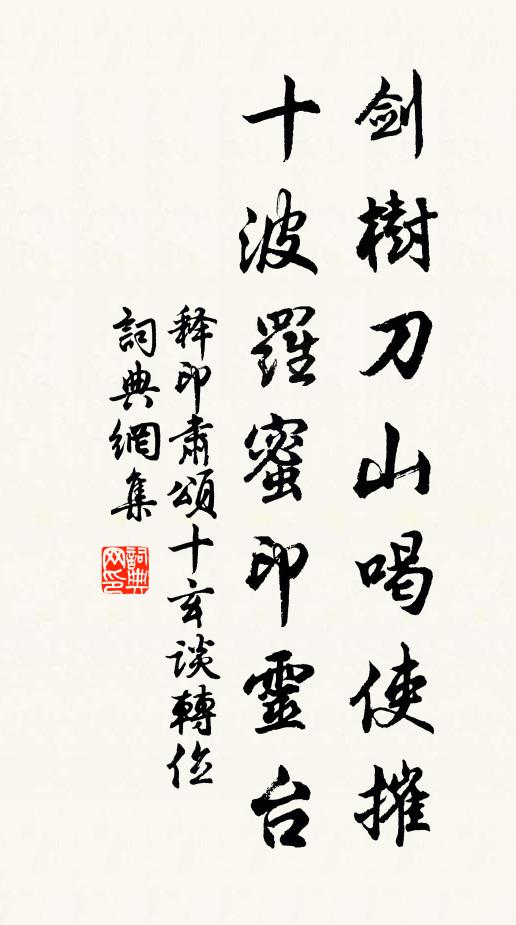 劍樹刀山喝使摧
十波羅蜜印靈台
释印肅頌十玄談轉位
詞典網集
詞典网印